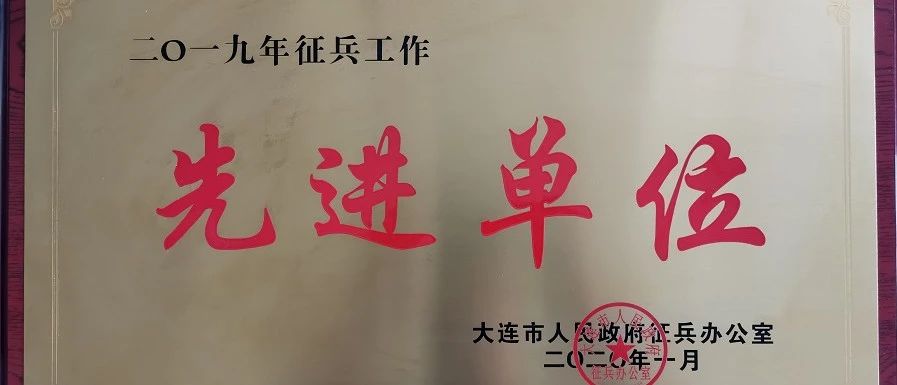 二〇一九年征兵工作
先进单位
大连市人民政府征兵办公室
二〇二〇年一月
大连市人民政府
征兵办公室